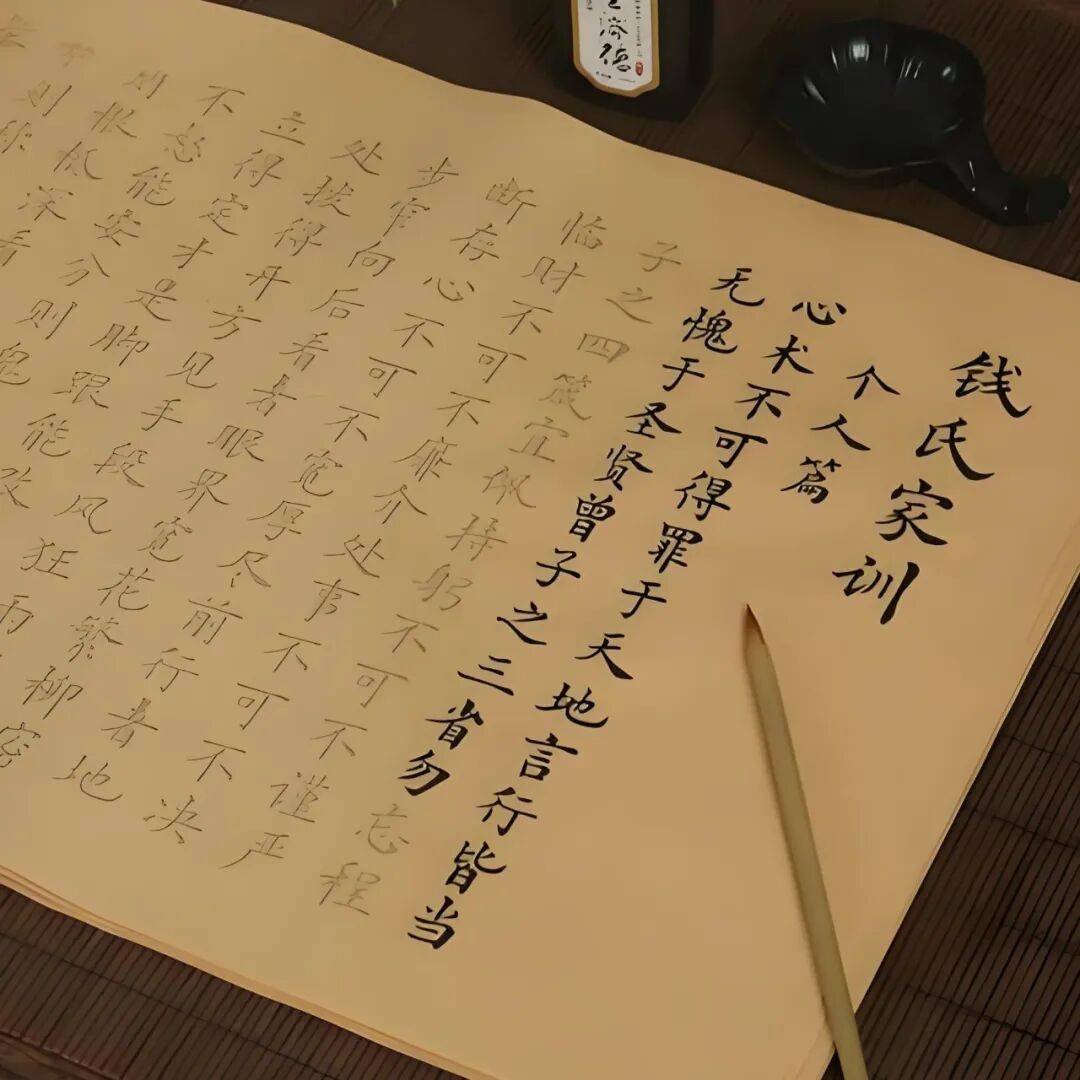 钱氏家训
个人篇
心术不可得罪于天地言行皆当
无愧于圣贤曾子之三省勿忘程
子之四箴宜佩持躬不可不谨严
临财不可不廉介处事不可不决
断存心不可不宽厚尽前行者地
步窄向后看者眼界宽花繁柳密
处拨得开方见手段风狂雨
立得定才是脚跟能改
不怒能安分则鬼
则根柢深看
则称